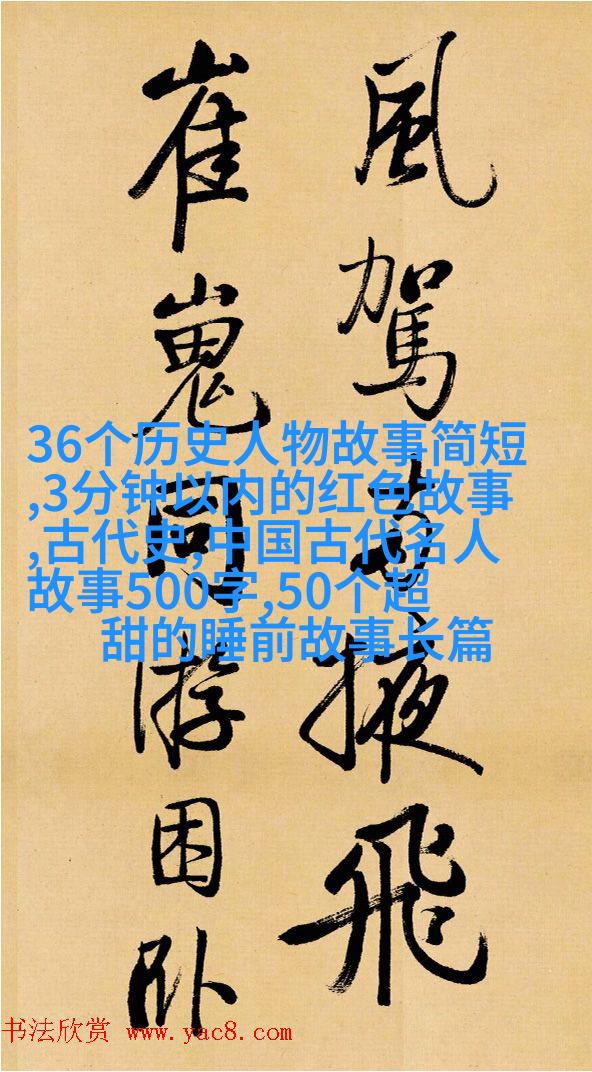 風駕掖飛
崔嵬同游困卧
36个历史人物故事简短
,3分钟以内的红色故事
,古代史,中国古代名人
故事500字,50个超
甜的睡前故事长篇
书法欣赏 www.yac8.com